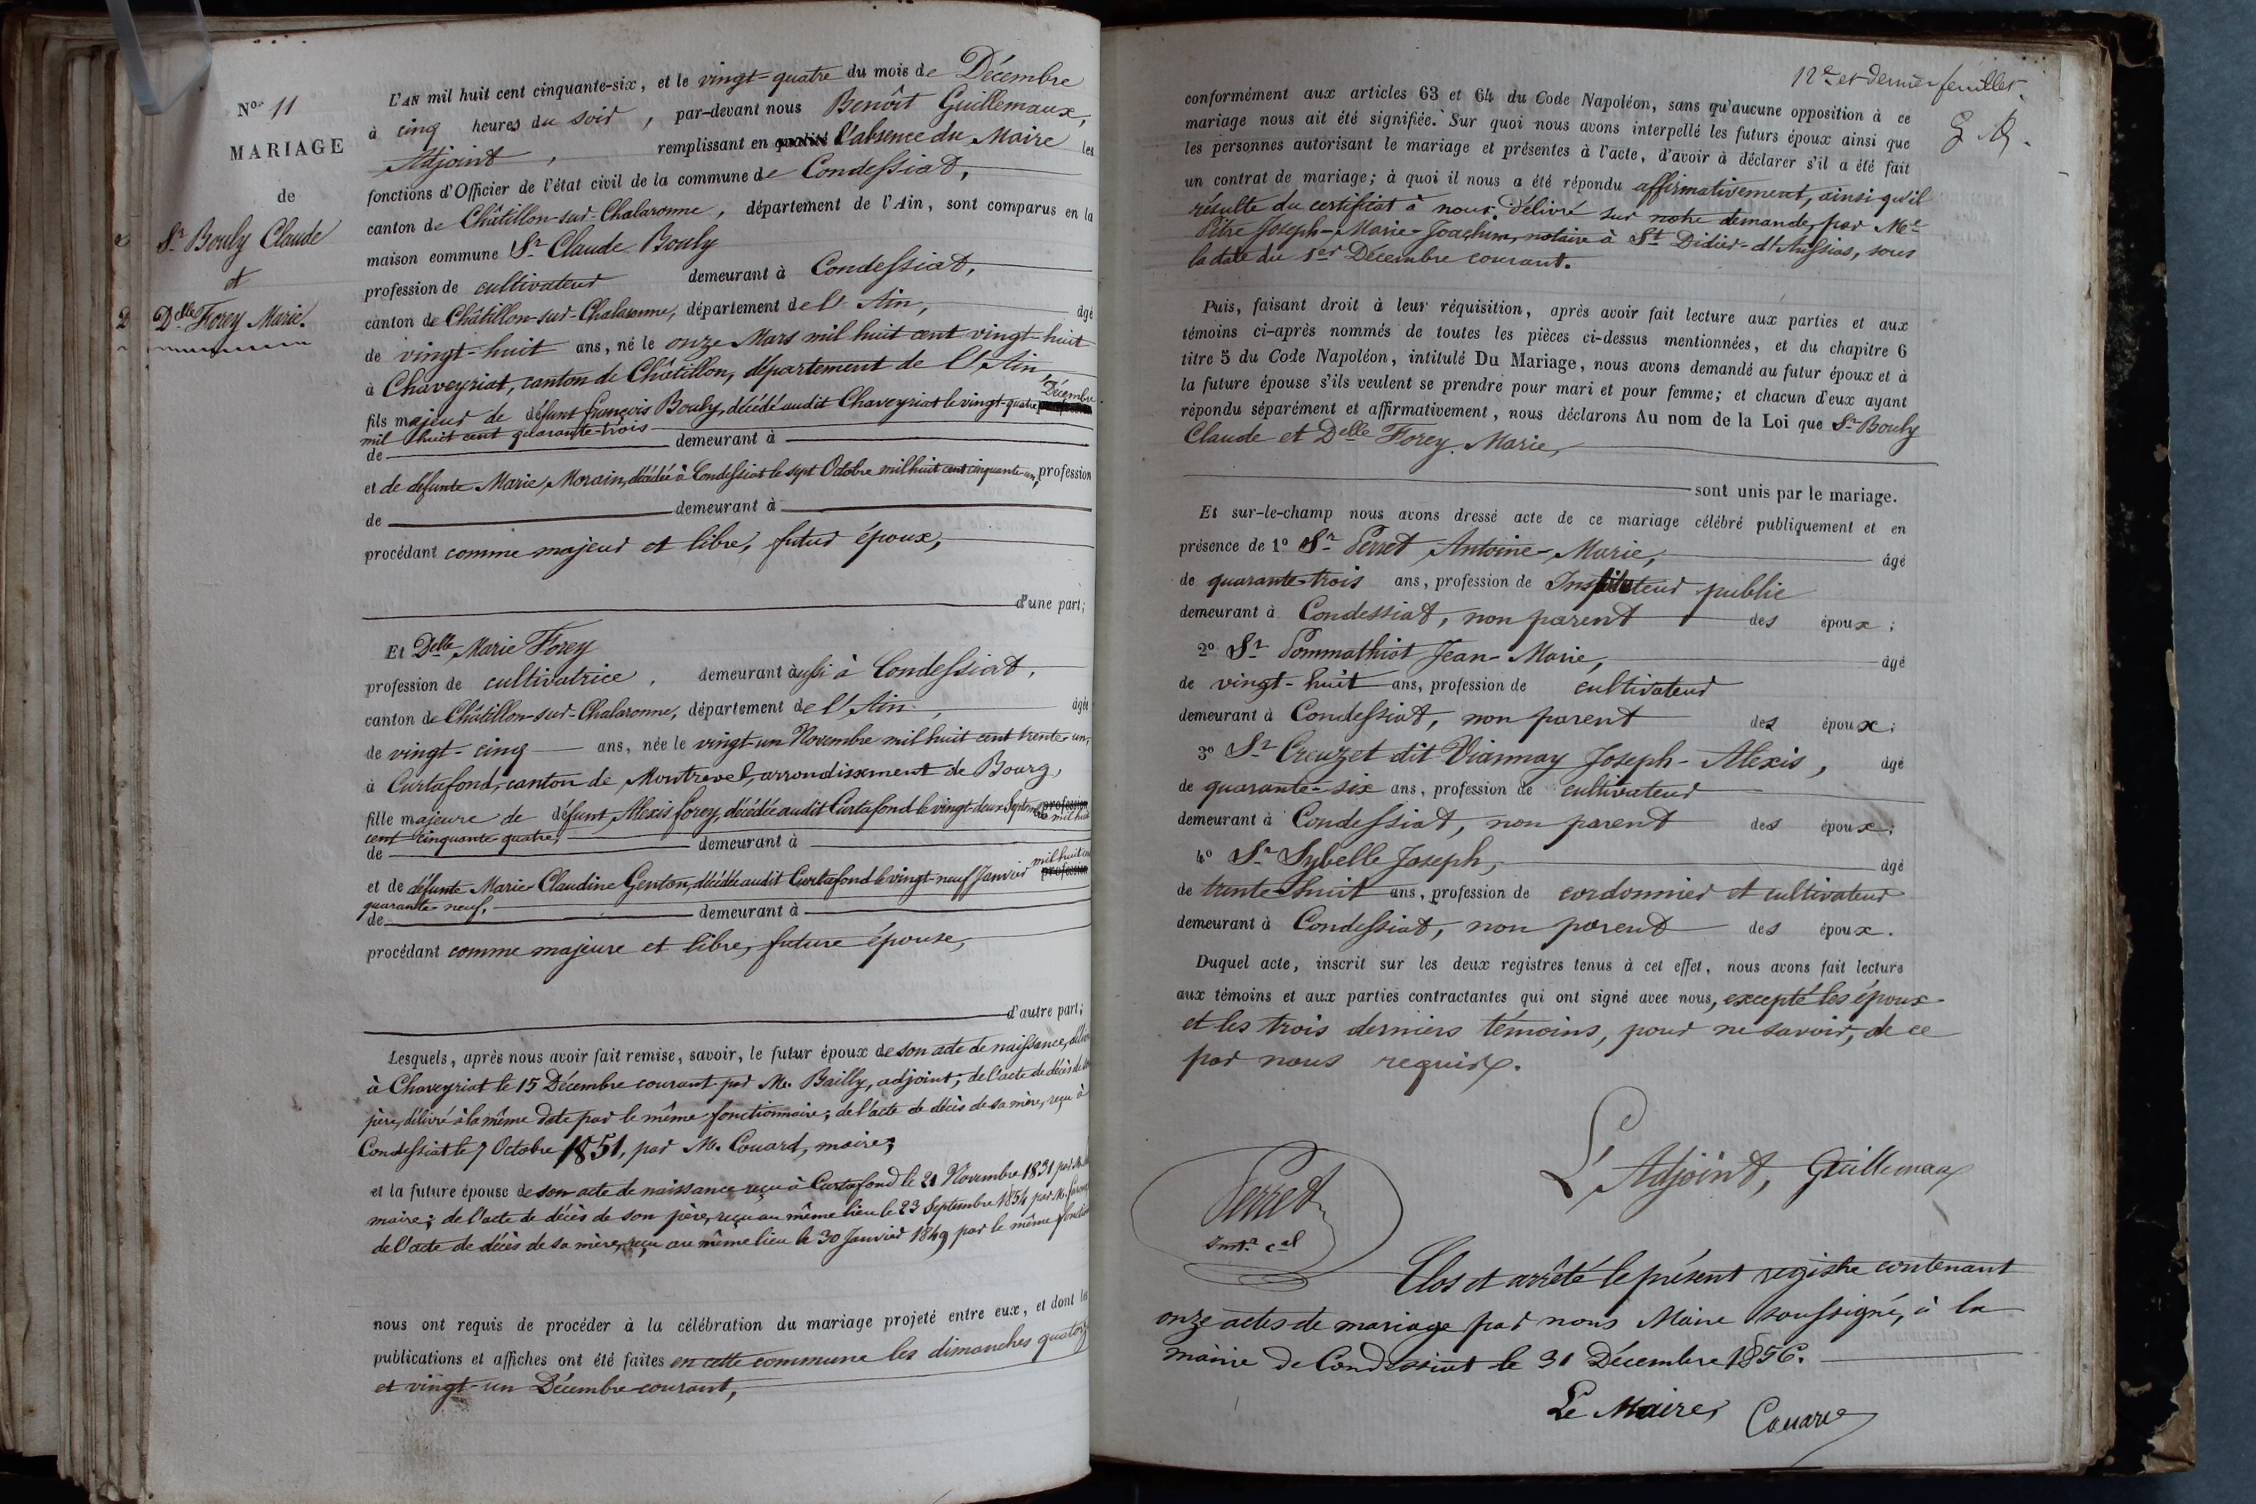 Nos 11
MARIAGE
de
Sr Bouly Claude
et
Delle Forey Marie.
L'AN mil huit cent cinquante-six, et le vingt-quatre du mois de Décembre
à cinq heures du soir, par-devant nous Benôit Guillemaux,
Adjoint, remplissant en l'absence du Maire les
fonctions d'Officier de l'état civil de la commune de Condessiat,
canton de Châtillon-sur-Chalaronne, département de l'Ain, sont comparus en la
maison commune Sr Claude Bouly
profession de cultivateur demeurant à Condessiat,
canton de Châtillon-sur-Chalaronne, département de l'Ain, âgé
de vingt-huit ans, né le onze Mars mil huit cent vingt-huit
à Chaveyriat, canton de Châtillon, département de l'Ain,
fils majeur de défunt françois Bouly, décédé audit Chaveyriat le vingt-quatre Décembre
mil huit cent quarante-trois
de demeurant à
et de défunte Marie Morain, décédée à Condessiat le sept Octobre mil huit cent cinquante-un, profession
de demeurant à
procédant comme majeur et libre, futur époux,
d'une part;
Et Delle Marie Forey
profession de cultivatrice, demeurant aussi à Condessiat,
canton de Châtillon-sur-Chalaronne, département de l'Ain, âgée
de vingt-cinq ans, née le vingt-un Novembre mil huit cent trente-un,
à Curtafond, canton de Montrevel, arrondissement de Bourg,
fille majeure de défunt Alexis forey, décédée audit Curtafond le vingt-deux Septembre mil huit
cent cinquante quatre,
de demeurant à
et de défunte Marie-Claudine Genton, décédée audit Curtafond le vingt-neuf Janvier mil huit cent
quarante-neuf,
de demeurant à
procédant comme majeure et libre, future épouse,
d'autre part;
Lesquels, après nous avoir fait remise, savoir, le futur époux de son acte de naissance, délivré
à Chaveyriat le 15 Décembre courant par M. Bailly, adjoint; de l'acte de décès de son
père, délivré à la même date par le même fonctionnaire; de l'acte de décès de sa mère, reçu à
Condessiat le 7 Octobre 1851, par M. Couard, maire;
et la future épouse de son acte de naissance reçu à Curtafond le 21 Novembre 1831 par M.
maire; de l'acte de décès de son père, reçu au même lieu le 23 Septembre 1854 par M.
de l'acte de décès de sa mère, reçu au même lieu le 30 Janvier 1849 par le même
nous ont requis de procéder à la célébration du mariage projeté entre eux, et dont les
publications et affiches ont été faites en cette commune les dimanches quatorze
et vingt-un Décembre courant,
12e et dernier feuillet.
conformément aux articles 63 et 64 du Code Napoléon, sans qu'aucune opposition à ce
mariage nous ait été signifiée. Sur quoi nous avons interpellé les futurs époux ainsi que
les personnes autorisant le mariage et présentes à l'acte, d'avoir à déclarer s'il a été fait
un contrat de mariage; à quoi il nous a été répondu affirmativement, ainsi qu'il
résulte du certificat à nous délivré sur notre demande, par Me
Pitre Joseph-Marie-Joachim, notaire à St Didier-d'Aussiat, sous
la date du 1er Décembre courant.
Puis, faisant droit à leur réquisition, après avoir fait lecture aux parties et aux
témoins ci-après nommés de toutes les pièces ci-dessus mentionnées, et du chapitre 6
titre 5 du Code Napoléon, intitulé Du Mariage, nous avons demandé au futur époux et à
la future épouse s'ils veulent se prendre pour mari et pour femme; et chacun d'eux ayant
répondu séparément et affirmativement, nous déclarons Au nom de la Loi que Sr Bouly
Claude et Delle Forey Marie,
sont unis par le mariage.
Et sur-le-champ nous avons dressé acte de ce mariage célébré publiquement et en
présence de 1° Sr Perret Antoine-Marie, âgé
de quarante-trois ans, profession de Instituteur public
demeurant à Condessiat, non parent des époux;
2° Sr Pommathiot Jean-Marie, âgé
de vingt-huit ans, profession de cultivateur
demeurant à Condessiat, non parent des époux;
3° Sr Creuzet dit Viannay Joseph-Alexis, âgé
de quarante-six ans, profession de cultivateur
demeurant à Condessiat, non parent des époux;
4° Sr Sybelle Joseph, âgé
de trente-huit ans, profession de cordonnier et cultivateur
demeurant à Condessiat, non parent des époux.
Duquel acte, inscrit sur les deux registres tenus à cet effet, nous avons fait lecture
aux témoins et aux parties contractantes qui ont signé avec nous, excepté les époux
et les trois derniers témoins, pour ne savoir, de ce
par nous requis.
L'Adjoint, Guillemaux
Perret
Clos et arrêté le présent registre contenant
onze actes de mariage par nous Maire soussigné, à la
mairie de Condessiat le 31 Décembre 1856.
Le Maire, Couard